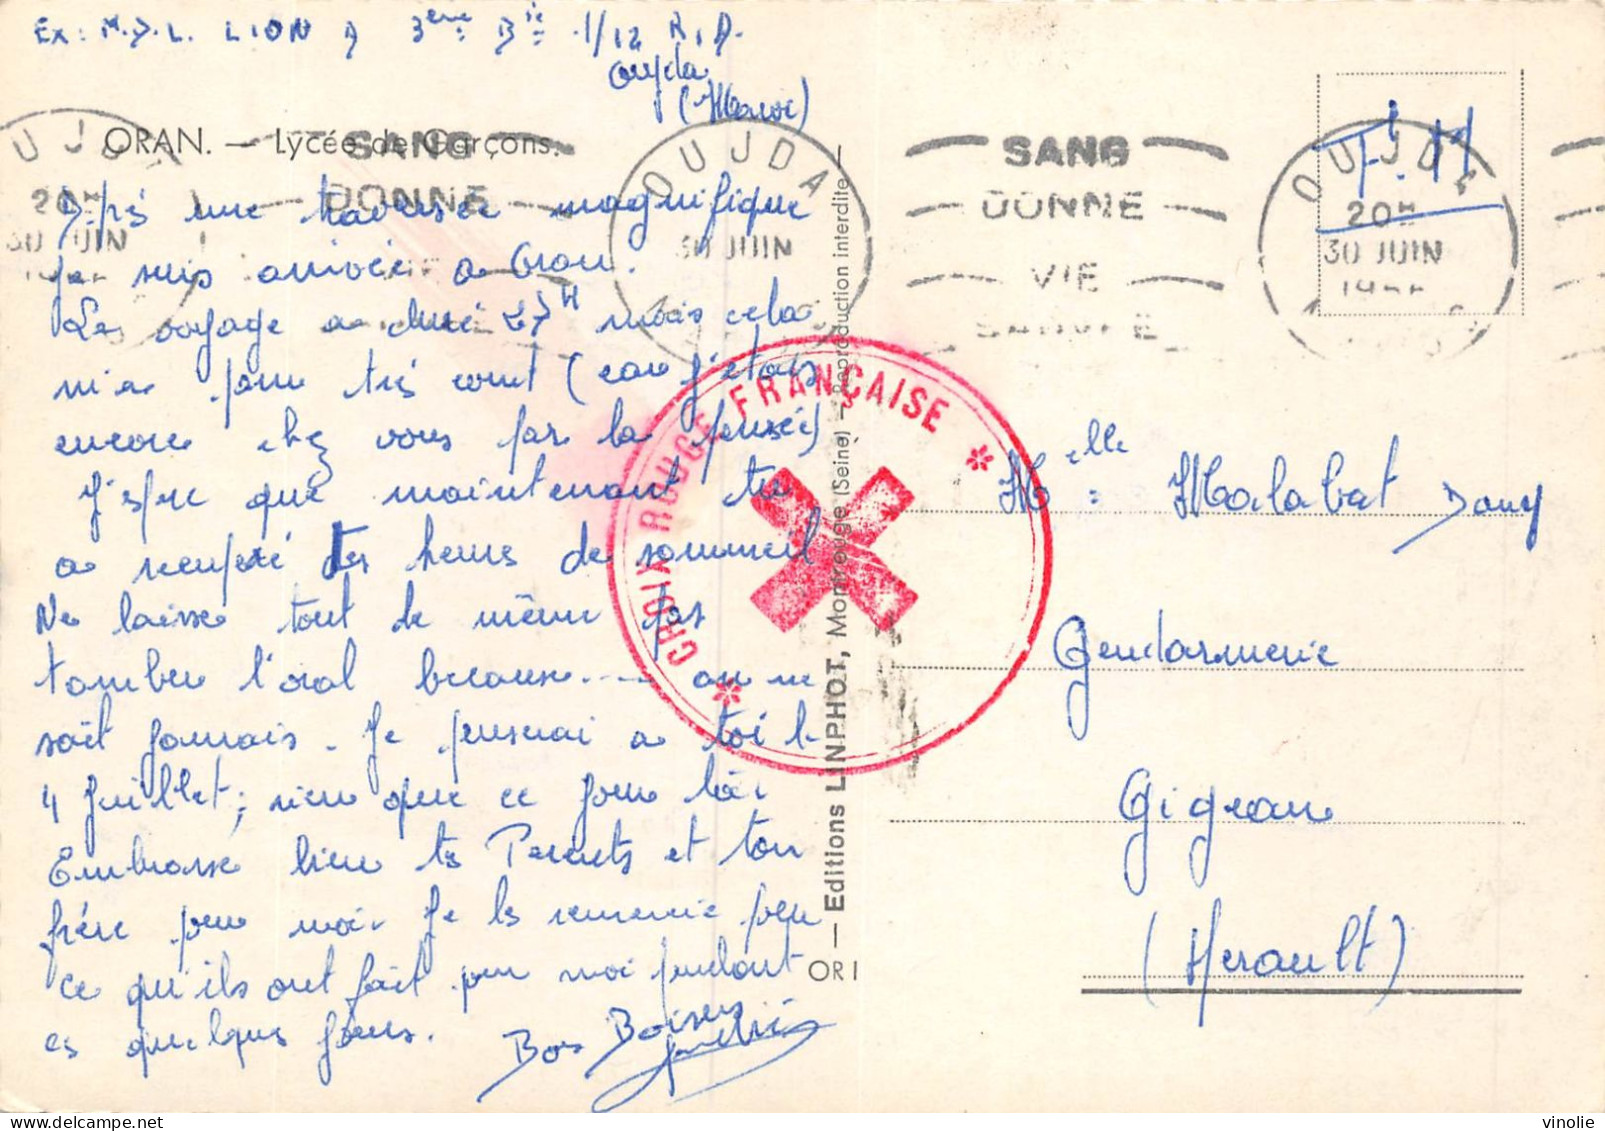 Ex: M.D.L. LION A 3ème Bie 1/12 R.A.
Oujda
(Maroc)
ORAN. — Lycée de Garçons.
OUJDA
20H
30 JUIN
SANG
DONNE
OUJDA
30 JUIN
SANG
DONNE
VIE
SAUVEE
OUJDA
20H
30 JUIN
F.M
Après une traversée magnifique
je suis arrivée a Oran.
Le voyage a duré 27H mais cela
m'a paru très court (car j'étais
encore chez vous par la pensée)
J'espère que maintenant tu
a récupéré des heures de sommeil
Ne laisse tout de même pas
tomber l'oral because.... on ne
sait jamais. Je penserai a toi le
4 juillet; rien que ce jour là!
Embrasse bien tes Parents et ton
frère pour moi. Je les remercie pour
ce qu'ils ont fait pour moi pendant
ces quelques jours. Bons Baisers
CROIX ROUGE FRANÇAISE
ORI — Editions LINPHOT, Montrouge (Seine) — Reproduction interdite —
Melle : Malabat Dany
Gendarmerie
Gigean
(Herault)
vinolie